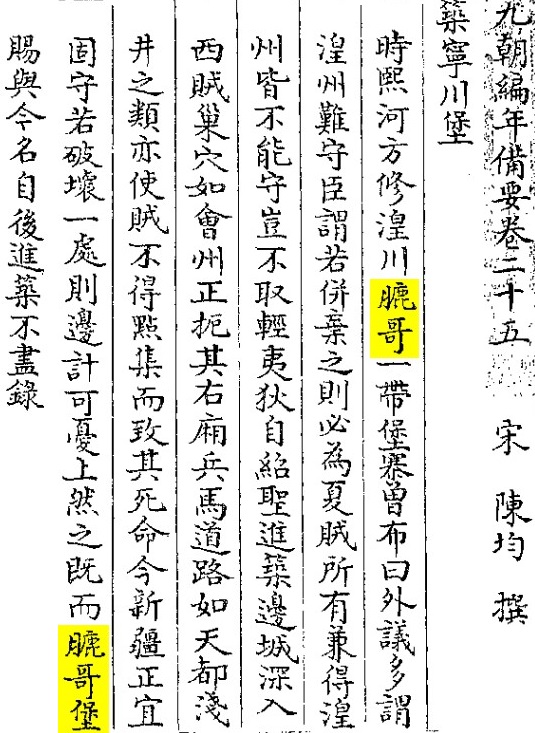 九朝編年備要卷二十五　宋　陳均　撰
築寧川堡
時熙河方修湟川䐑哥一帶堡寨曾布曰外議多謂
湟州難守臣謂若併棄之則必為夏賊所有兼得湟
州皆不能守豈不取輕夷狄自紹聖進築邊城深入
西賊巢穴如會州正扼其右廂兵馬道路如天都淺
井之類亦使賊不得㸃集而致其死命今新疆正宜
固守若破壞一處則邊計可憂上然之既而䐑哥堡
賜與今名自後進築不盡錄